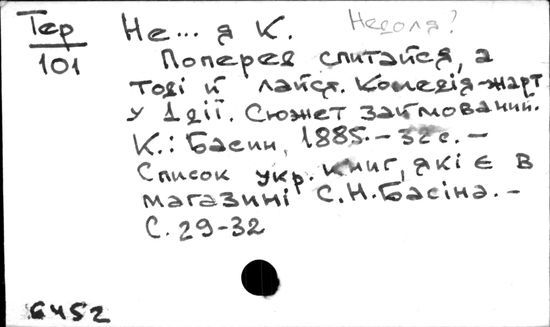 Тер
101
Не... я К. Недоля?
Поперед спитайся, а
тоді й лайся. Комедія-жарт
у 1 дії. Сюжет займований.
К.: Басин, 1885. – 32 с. –
Список укр. книг, які є в
магазині С.Н. Басіна. –
С. 29-32
6452